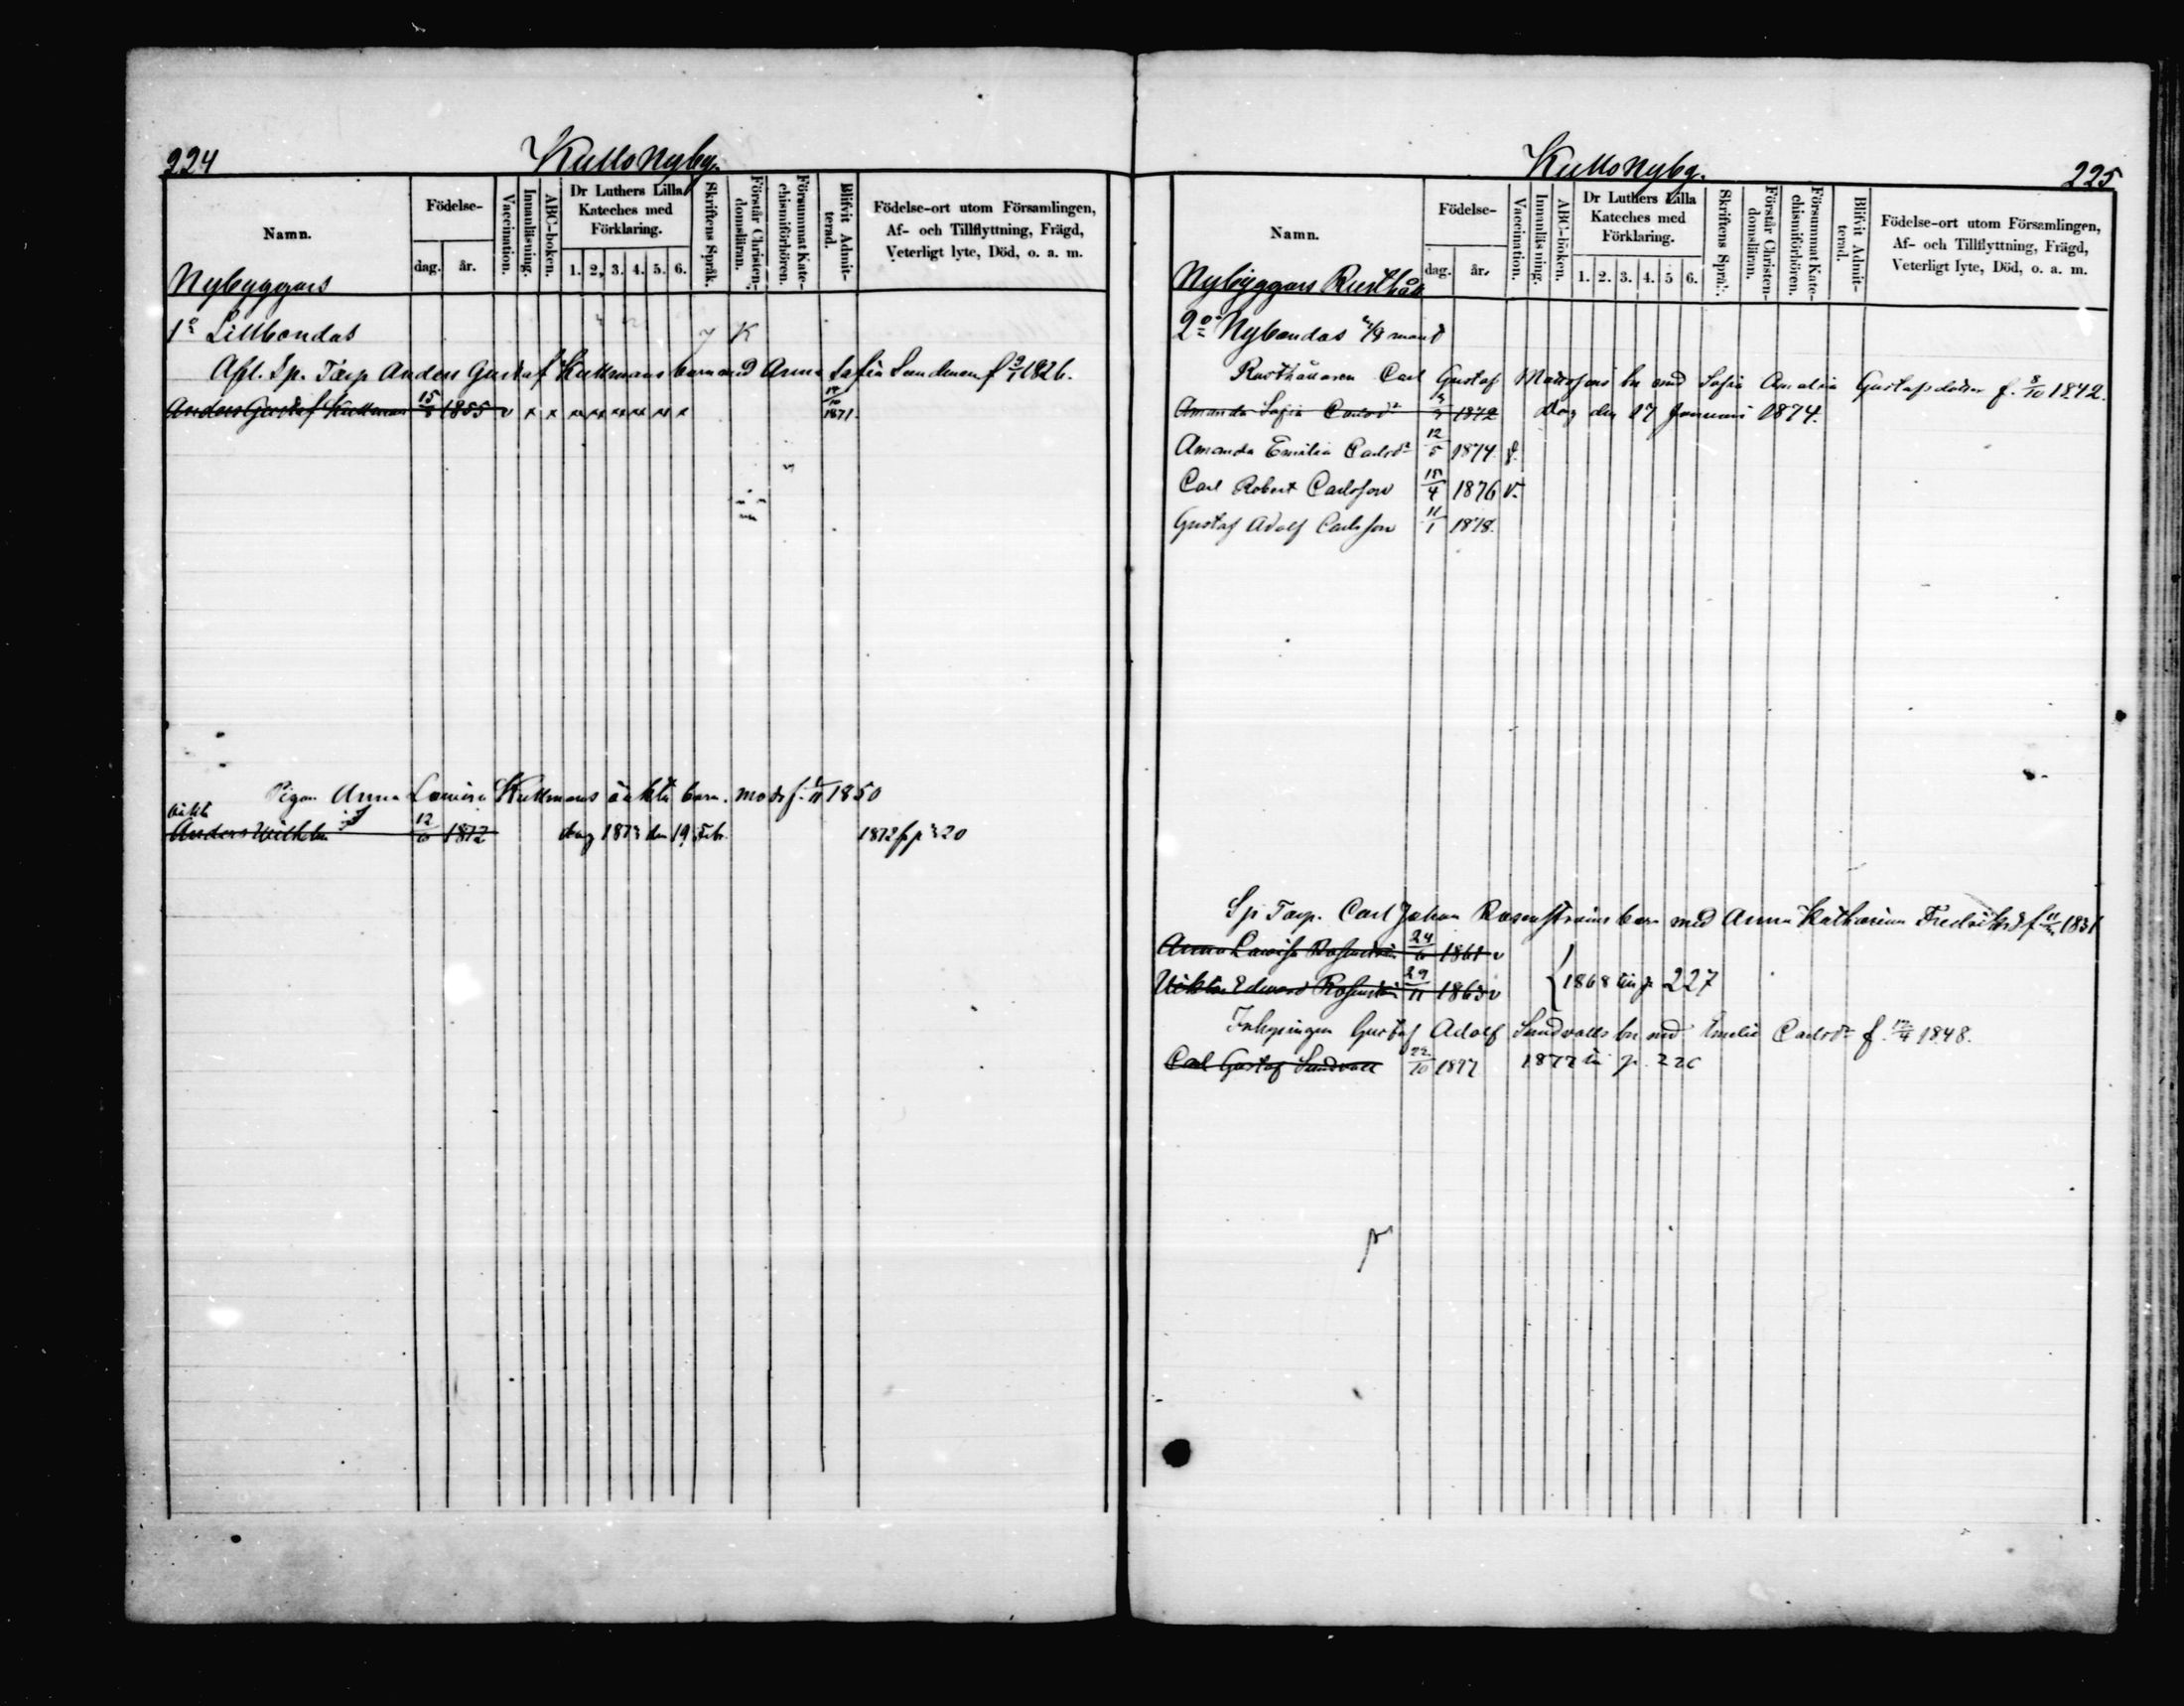 224
Kullo Nyby.
Namn.
Födelse-
dag.
år.
Vaccination.
Innanläsning.
ABC-boken.
Dr Luthers Lilla
Kateches med
Förklaring.
1. 2. 3. 4. 5. 6.
Skriftens Språk.
Förstår Christen-
domsläran.
Försummat Kate-
chismiförhören.
Blifvit Admit-
terad.
Födelse-ort utom Församlingen,
Af- och Tillflyttning, Frägd,
Veterligt lyte, Död, o. a. m.
Nybyggars
1o Lillbondas
Afl. Sp. Torp Anders Gustaf Kullmans barn med Anna Sofia Sundman f 1826.
Anders Gustaf Kullman 15 1855 v x x x x x x x x 1871.
Pigan Anna Lovisa Kullmans oäkta barn. mod. f. 1850
oäkta
Anders Wilhelm 12 1872 dog 1873 den 19 Feb. 1872 fr p 320
Kullo Nyby.
225
Namn.
Födelse-
dag.
år.
Vaccination.
Innanläsning.
ABC-boken.
Dr Luthers Lilla
Kateches med
Förklaring.
1. 2. 3. 4. 5 6.
Skriftens Språk.
Förstår Christen-
domsläran.
Försummat Kate-
chismiförhören.
Blifvit Admit-
terad.
Födelse-ort utom Församlingen,
Af- och Tillflyttning, Frägd,
Veterligt lyte, Död, o. a. m.
Nybyggars Rusthåll
2o Nybondas mant
Rusthållaren Carl Gustaf Mattssons bn med Sofia Amalia Gustafsdotter f. 8/10 1842.
Amanda Sofia Carlsdr 1872 dog den 17 Januari 1874.
Amanda Emilia Carlsdr 12/5 1874
Carl Robert Carlsson 15/4 1876 v.
Gustaf Adolf Carlsson 11/1 1878.
Sp Torp. Carl Johan Rosenströms barn med Anna Katharina Fredriksd f 1831
Anna Lovisa Rosenström 24/6 1861 v
Viktor Edvard Rosenström 29/11 1865 v { 1868 till p 227
Inhysingen Gustaf Adolf Sundvalls bn med Emelie Carlsdr f. 12/4 1848.
Carl Gustaf Sundvall 22/10 1877 1877 till p. 226